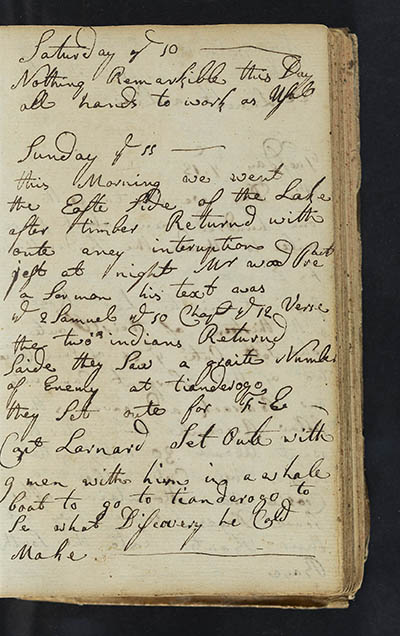 Saturday ye 10
Nothing Remarkible this Day
all hands to work as Usal
Sunday ye 11
this Morning we went
the Easte side of the Lake
after timber Returnd with
oute aney interuption
jest at night Mr wood Pre
a Sormon his text was
ye 2 Samuel ye 10 Chapt ye 12 Verse
the two indians Returnd
Saide they Saw a graite Number
of Enemy at tianderogo
they Set oute for F E
Capt Larnard Set Oute with
9 men with him in a whale
boat to go to tianderogo to
Se what Discovery he Cold
Make